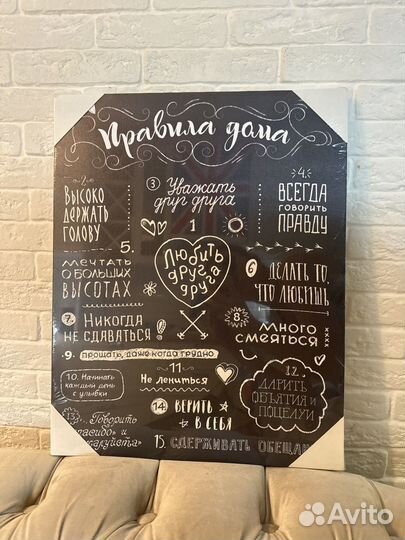 Правила дома
1
Любить
друг
друга
2.
Высоко
держать
голову
3
Уважать
друг друга
4.
Всегда
говорить
правду
5.
Мечтать
о больших
высотах
6
Делать то,
что любишь
7.
Никогда
не сдаваться!
8.
Много
смеяться
xxxx
9. прощать, даже когда трудно
10. Начинать
каждый день
с улыбки
11
Не лениться
12.
Дарить
объятия и
поцелуи
13.
Говорить
14
Верить
в себя
15. Сдерживать
Avito